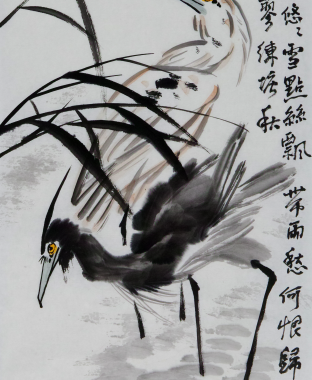 悠〻雪點絲飄帶雨愁何恨歸
練塘秋